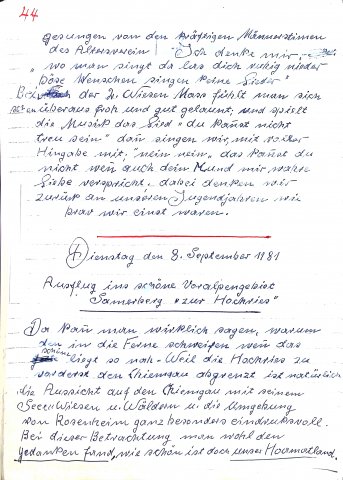 44
gesungen von den kräftigen Männerstimmen
des Altersverein! "Ich denke mir,
"wo man singt da las dich ruhig nieder
böse Menschen singen keine Lieder"
Bei der 2. Wiesen Mass fühlt man sich
überaus froh und gut gelaunt, und spielt
die Musik das Lied "du kañst nicht
treu sein" dañ singen wir, mit voller
Hingabe mit, "nein nein, das kañst du
nicht weñ auch dein Mund mir wahre
Liebe verspricht, dabei denken wir
zurück an unseren Jugendjahren wie
brav wir einst waren.
Dienstag den 8. September 1981
Ausflug ins schöne Voralpengebiet
Samerberg "zur Hochries"
Da kañ man wirklich sagen, warum
den in die Ferne schweifen weñ das
schöne liegt so nah - Weil die Hochries zu
vorderst den Chiemgau abgrenzt ist natürlich
die Aussicht auf den Chiemgau mit seinem
Seen Wiesen u. Wäldern u. die Umgebung
von Rosenheim ganz besonders eindrucksvoll.
Bei dieser Betrachtung man wohl den
gedanken fand, wie schön ist doch unser Hoamatland.